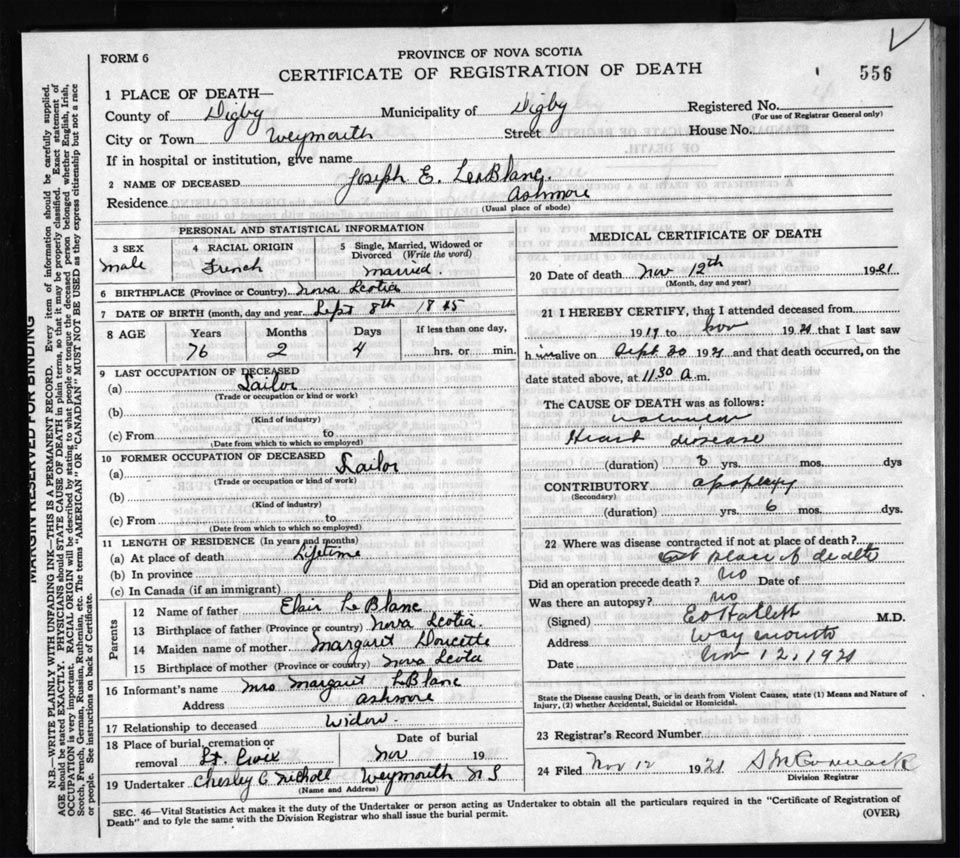 FORM 6
PROVINCE OF NOVA SCOTIA
CERTIFICATE OF REGISTRATION OF DEATH
556
1 PLACE OF DEATH—
County of Digby Municipality of Digby Registered No.
(For use of Registrar General only)
City or Town Weymouth Street House No.
If in hospital or institution, give name
2 NAME OF DECEASED Joseph E. LeBlanc.
Residence Ashmore
(Usual place of abode)
PERSONAL AND STATISTICAL INFORMATION
3 SEX 4 RACIAL ORIGIN 5 Single, Married, Widowed or Divorced (Write the word)
Male French Married.
6 BIRTHPLACE (Province or Country) Nova Scotia
7 DATE OF BIRTH (month, day and year) Sept 8th 1845
8 AGE Years Months Days If less than one day,
76 2 4 hrs. or min.
9 LAST OCCUPATION OF DECEASED
(a) Sailor
(Trade or occupation or kind of work)
(b)
(Kind of industry)
(c) From to
(Date from which to which so employed)
10 FORMER OCCUPATION OF DECEASED
(a) Sailor
(Trade or occupation or kind of work)
(b)
(Kind of industry)
(c) From to
(Date from which to which so employed)
11 LENGTH OF RESIDENCE (In years and months)
(a) At place of death Lifetime
(b) In province
(c) In Canada (if an immigrant)
Parents
12 Name of father LeBlanc
13 Birthplace of father (Province or country) Nova Scotia.
14 Maiden name of mother Margaret Doucette
15 Birthplace of mother (Province or country) Nova Scotia
16 Informant's name Mrs Margaret LeBlanc
Address Ashmore
17 Relationship to deceased Widow.
18 Place of burial, cremation or removal St. Croix
Date of burial
Nov 19
19 Undertaker Chesley C Nicholl Weymouth N S
(Name and Address)
MEDICAL CERTIFICATE OF DEATH
20 Date of death Nov 12th 1921
(Month, day and year)
21 I HEREBY CERTIFY, that I attended deceased from
1919 to Nov 1921 that I last saw
him alive on Sept 30 1921 and that death occurred, on the
date stated above, at 11 30 A. m.
The CAUSE OF DEATH was as follows:
Valvular
Heart disease
(duration) 3 yrs. mos. dys
CONTRIBUTORY apoplexy
(Secondary)
(duration) yrs. 6 mos. dys.
22 Where was disease contracted if not at place of death?
At place of death
Did an operation precede death? no Date of
Was there an autopsy? no
(Signed) E Hallett M.D.
Address Weymouth
Date Nov 12, 1921
State the Disease causing Death, or in death from Violent Causes, state (1) Means and Nature of
Injury, (2) whether Accidental, Suicidal or Homicidal.
23 Registrar's Record Number
24 Filed Nov 12 1921 McCormack
Division Registrar
SEC. 46—Vital Statistics Act makes it the duty of the Undertaker or person acting as Undertaker to obtain all the particulars required in the "Certificate of Registration of
Death" and to fyle the same with the Division Registrar who shall issue the burial permit.
(OVER)
MARGIN RESERVED FOR BINDING
N.B.—WRITE PLAINLY WITH UNFADING INK—THIS IS A PERMANENT RECORD. Every item of information should be carefully supplied.
AGE should be stated EXACTLY. PHYSICIANS should STATE CAUSE OF DEATH in plain terms, so that it may be properly classified. Exact statement of
OCCUPATION is very important. RACIAL ORIGIN will be described by stating to what people or tongue the deceased person belonged, whether English, Irish,
Scotch, French, German, Russian, Ruthenian, etc. The terms "AMERICAN" OR "CANADIAN" MUST NOT BE USED as they express citizenship but not a race
or people. See instructions on back of Certificate.